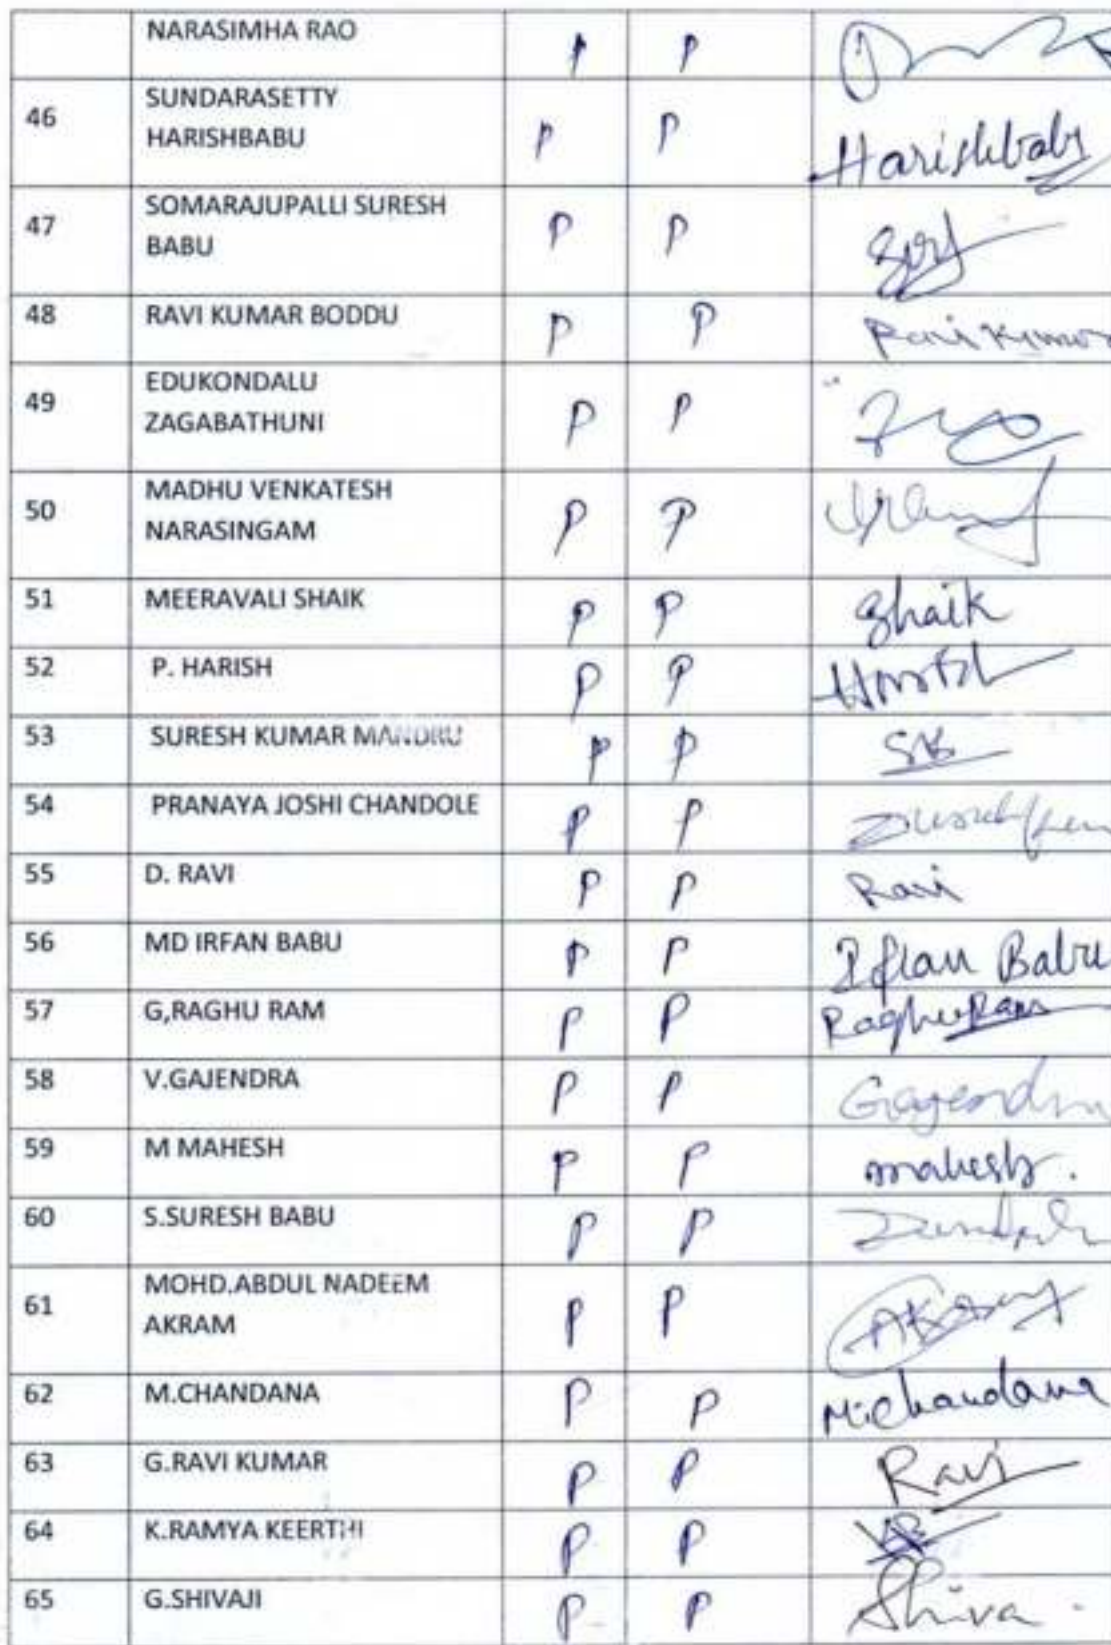 NARASIMHA RAO P P
46 SUNDARASETTY
HARISHBABU P P Harishbabu
47 SOMARAJUPALLI SURESH
BABU P P
48 RAVI KUMAR BODDU P P Ravi Kumar
49 EDUKONDALU
ZAGABATHUNI P P
50 MADHU VENKATESH
NARASINGAM P P
51 MEERAVALI SHAIK P P Shaik
52 P. HARISH P P
53 SURESH KUMAR MANDRU P P
54 PRANAYA JOSHI CHANDOLE P P
55 D. RAVI P P Ravi
56 MD IRFAN BABU P P Irfan Babu
57 G,RAGHU RAM P P RaghuRam
58 V.GAJENDRA P P Gagendra
59 M MAHESH P P mahesh.
60 S.SURESH BABU P P
61 MOHD.ABDUL NADEEM
AKRAM P P
62 M.CHANDANA P P M.Chandana
63 G.RAVI KUMAR P P Ravi
64 K.RAMYA KEERTHI P P
65 G.SHIVAJI P P Shiva